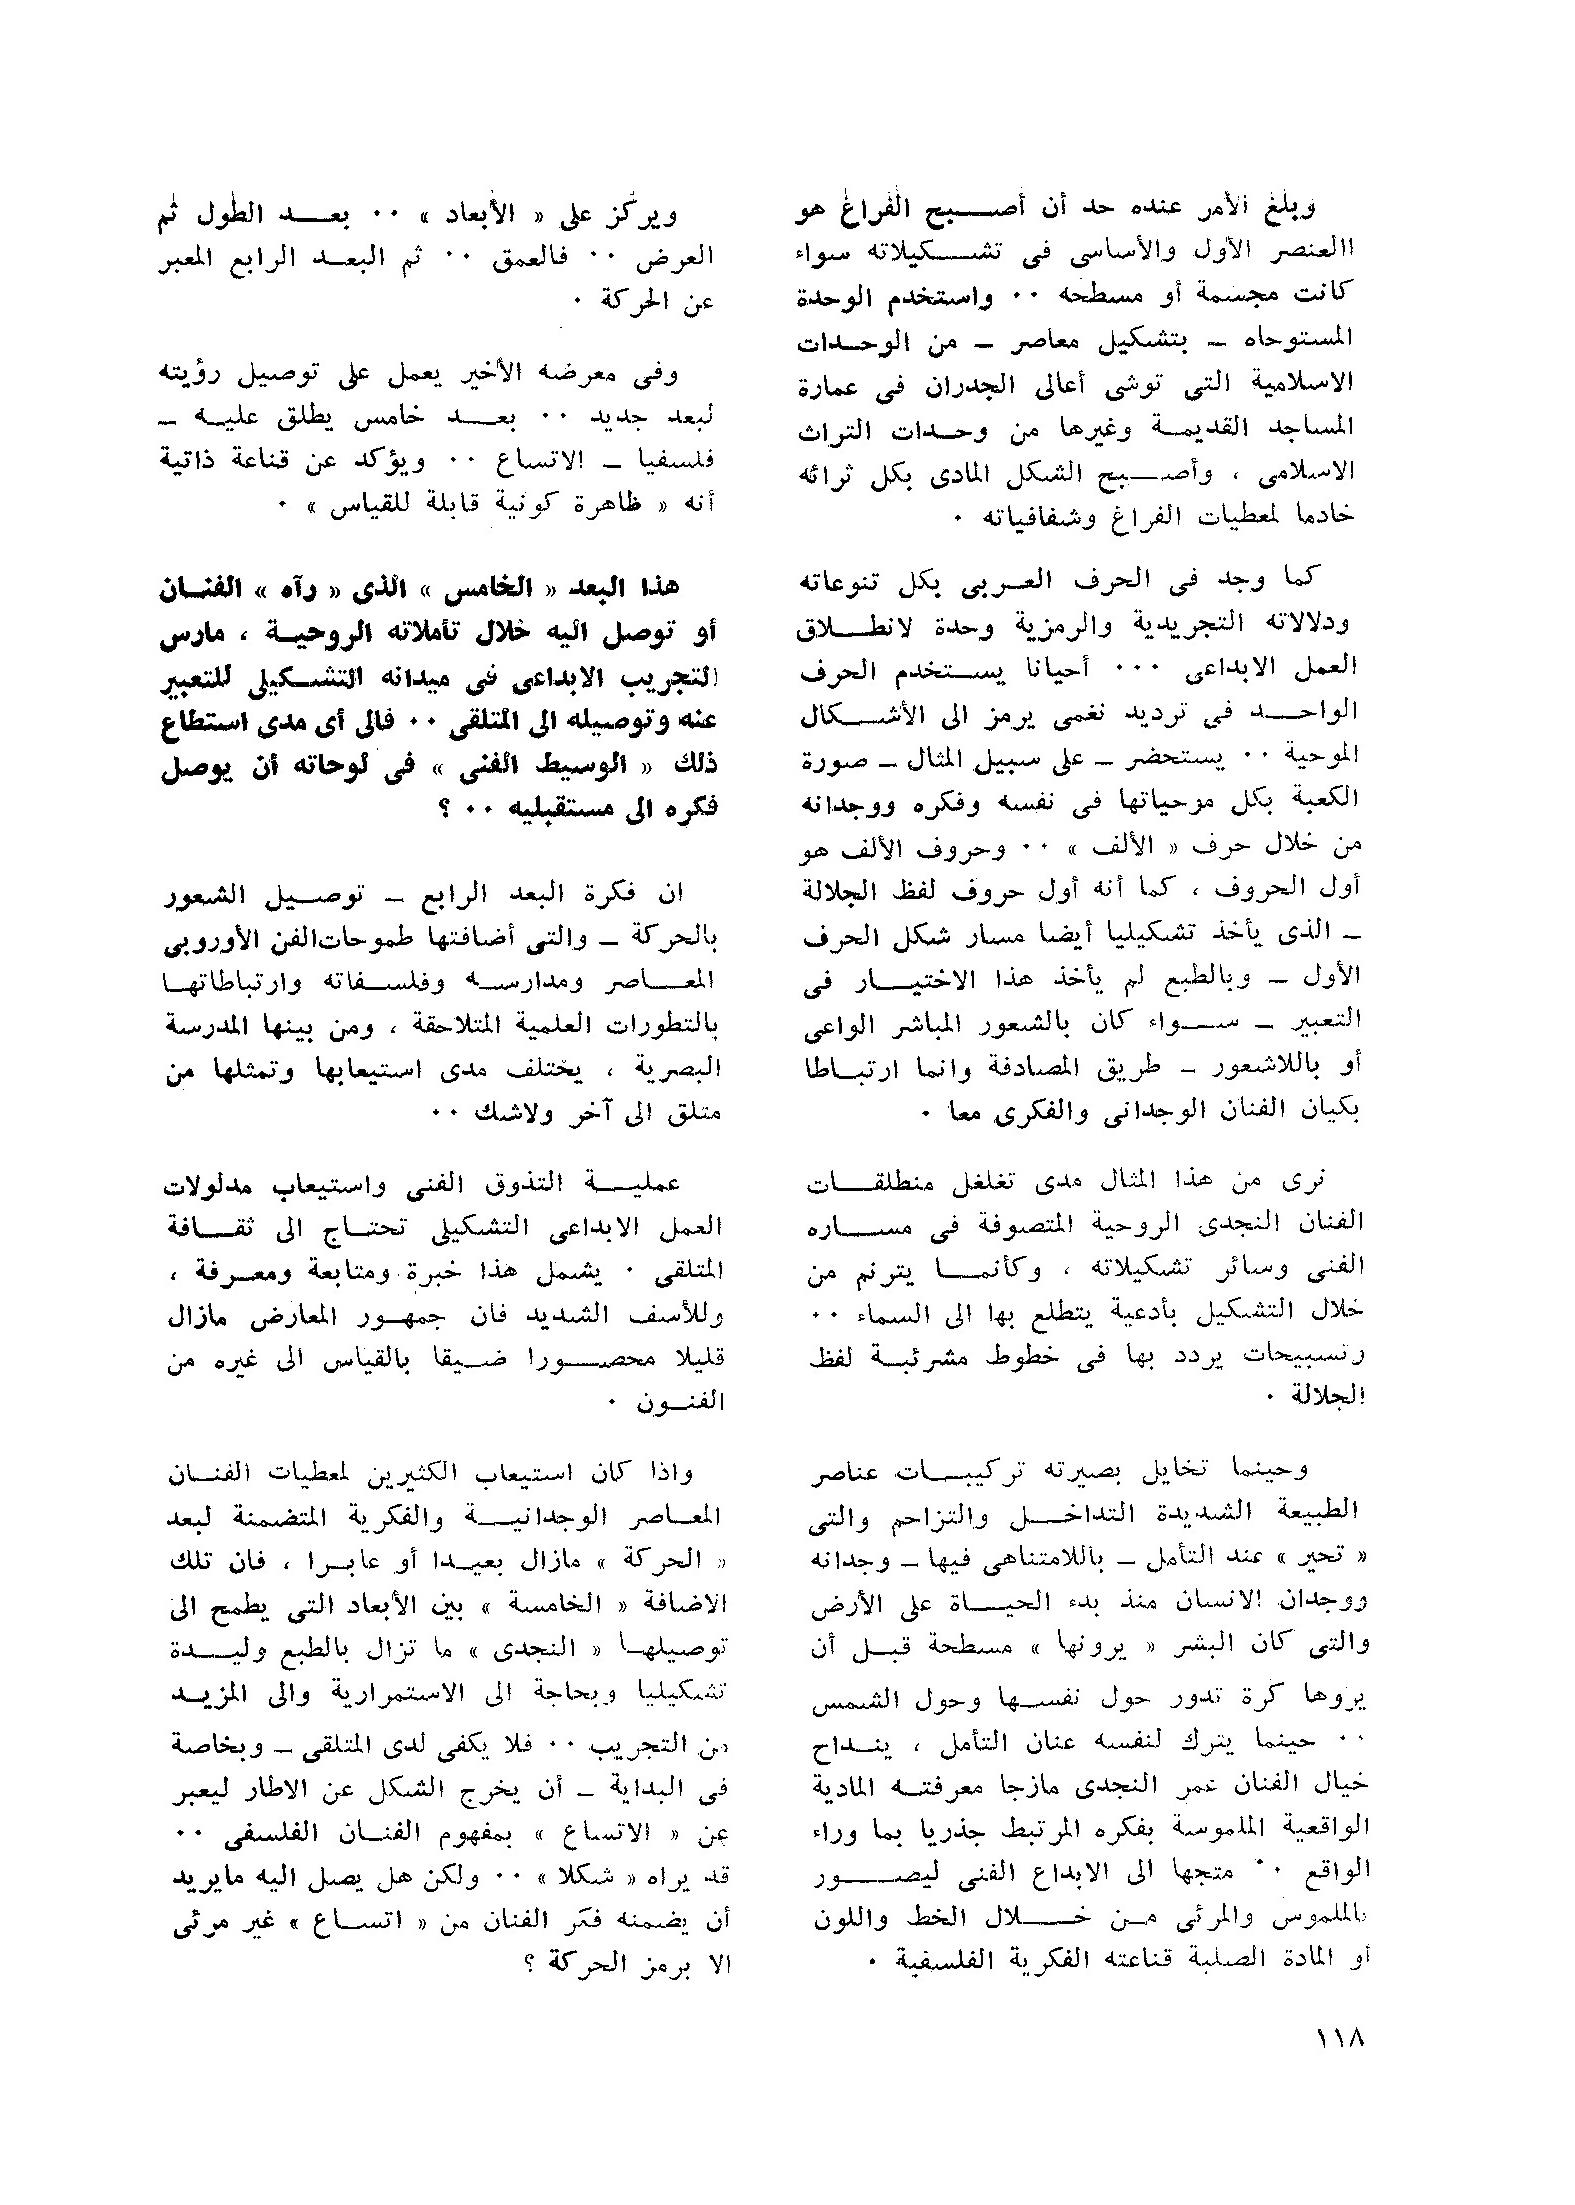 وبلغ الأمر عنده حد أن أصبح الفراغ هو
االعنصر الأول والأساسى فى تشكيلاته سواء
كانت مجسمة أو مسطحه ٠٠ واستخدم الوحدة
المستوحاه – بتشكيل معاصر – من الوحدات
الاسلامية التى توشى أعالى الجدران فى عمارة
المساجد القديمة وغيرها من وحدات التراث
الاسلامى ، وأصبح الشكل المادى بكل ثرائه
خادما لمعطيات الفراغ وشفافياته ٠
كما وجد فى الحرف العربى بكل تنوعاته
ودلالاته التجريدية والرمزية وحدة لانطلاق
العمل الابداعى ٠٠٠ أحيانا يستخدم الحرف
الواحد فى ترديد نغمى يرمز الى الأشكال
الموحية ٠٠ يستحضر – على سبيل المثال – صورة
الكعبة بكل موحياتها فى نفسه وفكره ووجدانه
من خلال حرف « الألف » ٠٠ وحروف الألف هو
أول الحروف ، كما أنه أول حروف لفظ الجلالة
– الذى يأخذ تشكيليا أيضا مسار شكل الحرف
الأول – وبالطبع لم يأخذ هذا الاختيار فى
التعبير – سواء كان بالشعور المباشر الواعى
أو باللاشعور – طريق المصادفة وانما ارتباطا
بكيان الفنان الوجدانى والفكرى معا ٠
نرى من هذا المثال مدى تغلغل منطلقات
الفنان النجدى الروحية المتصوفة فى مساره
الفنى وسائر تشكيلاته ، وكأنما يترنم من
خلال التشكيل بأدعية يتطلع بها الى السماء ٠٠
وتسبيحات يردد بها فى خطوط مشرئبة لفظ
الجلالة ٠
وحينما تخايل بصيرته تركيبات عناصر
الطبيعة الشديدة التداخل والتزاحم والتى
« تحير » عند التأمل – باللامتناهى فيها – وجدانه
ووجدان الانسان منذ بدء الحياة على الأرض
والتى كان البشر « يرونها » مسطحة قبل أن
يروها كرة تدور حول نفسها وحول الشمس
٠٠ حينما يترك لنفسه عنان التأمل ، ينداح
خيال الفنان عمر النجدى مازجا معرفته المادية
الواقعية الملموسة بفكره المرتبط جذريا بما وراء
الواقع ٠٠ متجها الى الابداع الفنى ليصور
بالملموس والمرئى من خلال الخط واللون
أو المادة الصلبة قناعته الفكرية الفلسفية ٠
ويركز على « الأبعاد » ٠٠ بعد الطول ثم
العرض ٠٠ فالعمق ٠٠ ثم البعد الرابع المعبر
عن الحركة ٠
وفى معرضه الأخير يعمل على توصيل رؤيته
لبعد جديد ٠٠ بعد خامس يطلق عليه –
فلسفيا – الاتساع ٠٠ ويؤكد عن قناعة ذاتية
أنه « ظاهرة كونية قابلة للقياس » ٠
هذا البعد « الخامس » الذى « رآه » الفنان
أو توصل اليه خلال تأملاته الروحية ، مارس
التجريب الابداعى فى ميدانه التشكيلى للتعبير
عنه وتوصيله الى المتلقى ٠٠ فالى أى مدى استطاع
ذلك « الوسيط الفنى » فى لوحاته أن يوصل
فكره الى مستقبليه ٠٠ ؟
ان فكرة البعد الرابع – توصيل الشعور
بالحركة – والتى أضافتها طموحات الفن الأوروبى
المعاصر ومدارسه وفلسفاته وارتباطاتها
بالتطورات العلمية المتلاحقة ، ومن بينها المدرسة
البصرية ، يختلف مدى استيعابها وتمثلها من
متلق الى آخر ولاشك ٠٠
عملية التذوق الفنى واستيعاب مدلولات
العمل الابداعى التشكيلى تحتاج الى ثقافة
المتلقى ٠ يشمل هذا خبرة ومتابعة ومعرفة ،
وللأسف الشديد فان جمهور المعارض مازال
قليلا محصورا ضيقا بالقياس الى غيره من
الفنون ٠
واذا كان استيعاب الكثيرين لمعطيات الفنان
المعاصر الوجدانية والفكرية المتضمنة لبعد
« الحركة » مازال بعيدا أو عابرا ، فان تلك
الاضافة « الخامسة » بين الأبعاد التى يطمح الى
توصيلها « النجدى » ما تزال بالطبع وليدة
تشكيليا وبحاجة الى الاستمرارية والى المزيد
من التجريب ٠٠ فلا يكفى لدى المتلقى – وبخاصة
فى البداية – أن يخرج الشكل عن الاطار ليعبر
عن « الاتساع » بمفهوم الفنان الفلسفى ٠٠
قد يراه « شكلا » ٠٠ ولكن هل يصل اليه مايريد
أن يضمنه فكر الفنان من « اتساع » غير مرئى
الا برمز الحركة ؟
١١٨